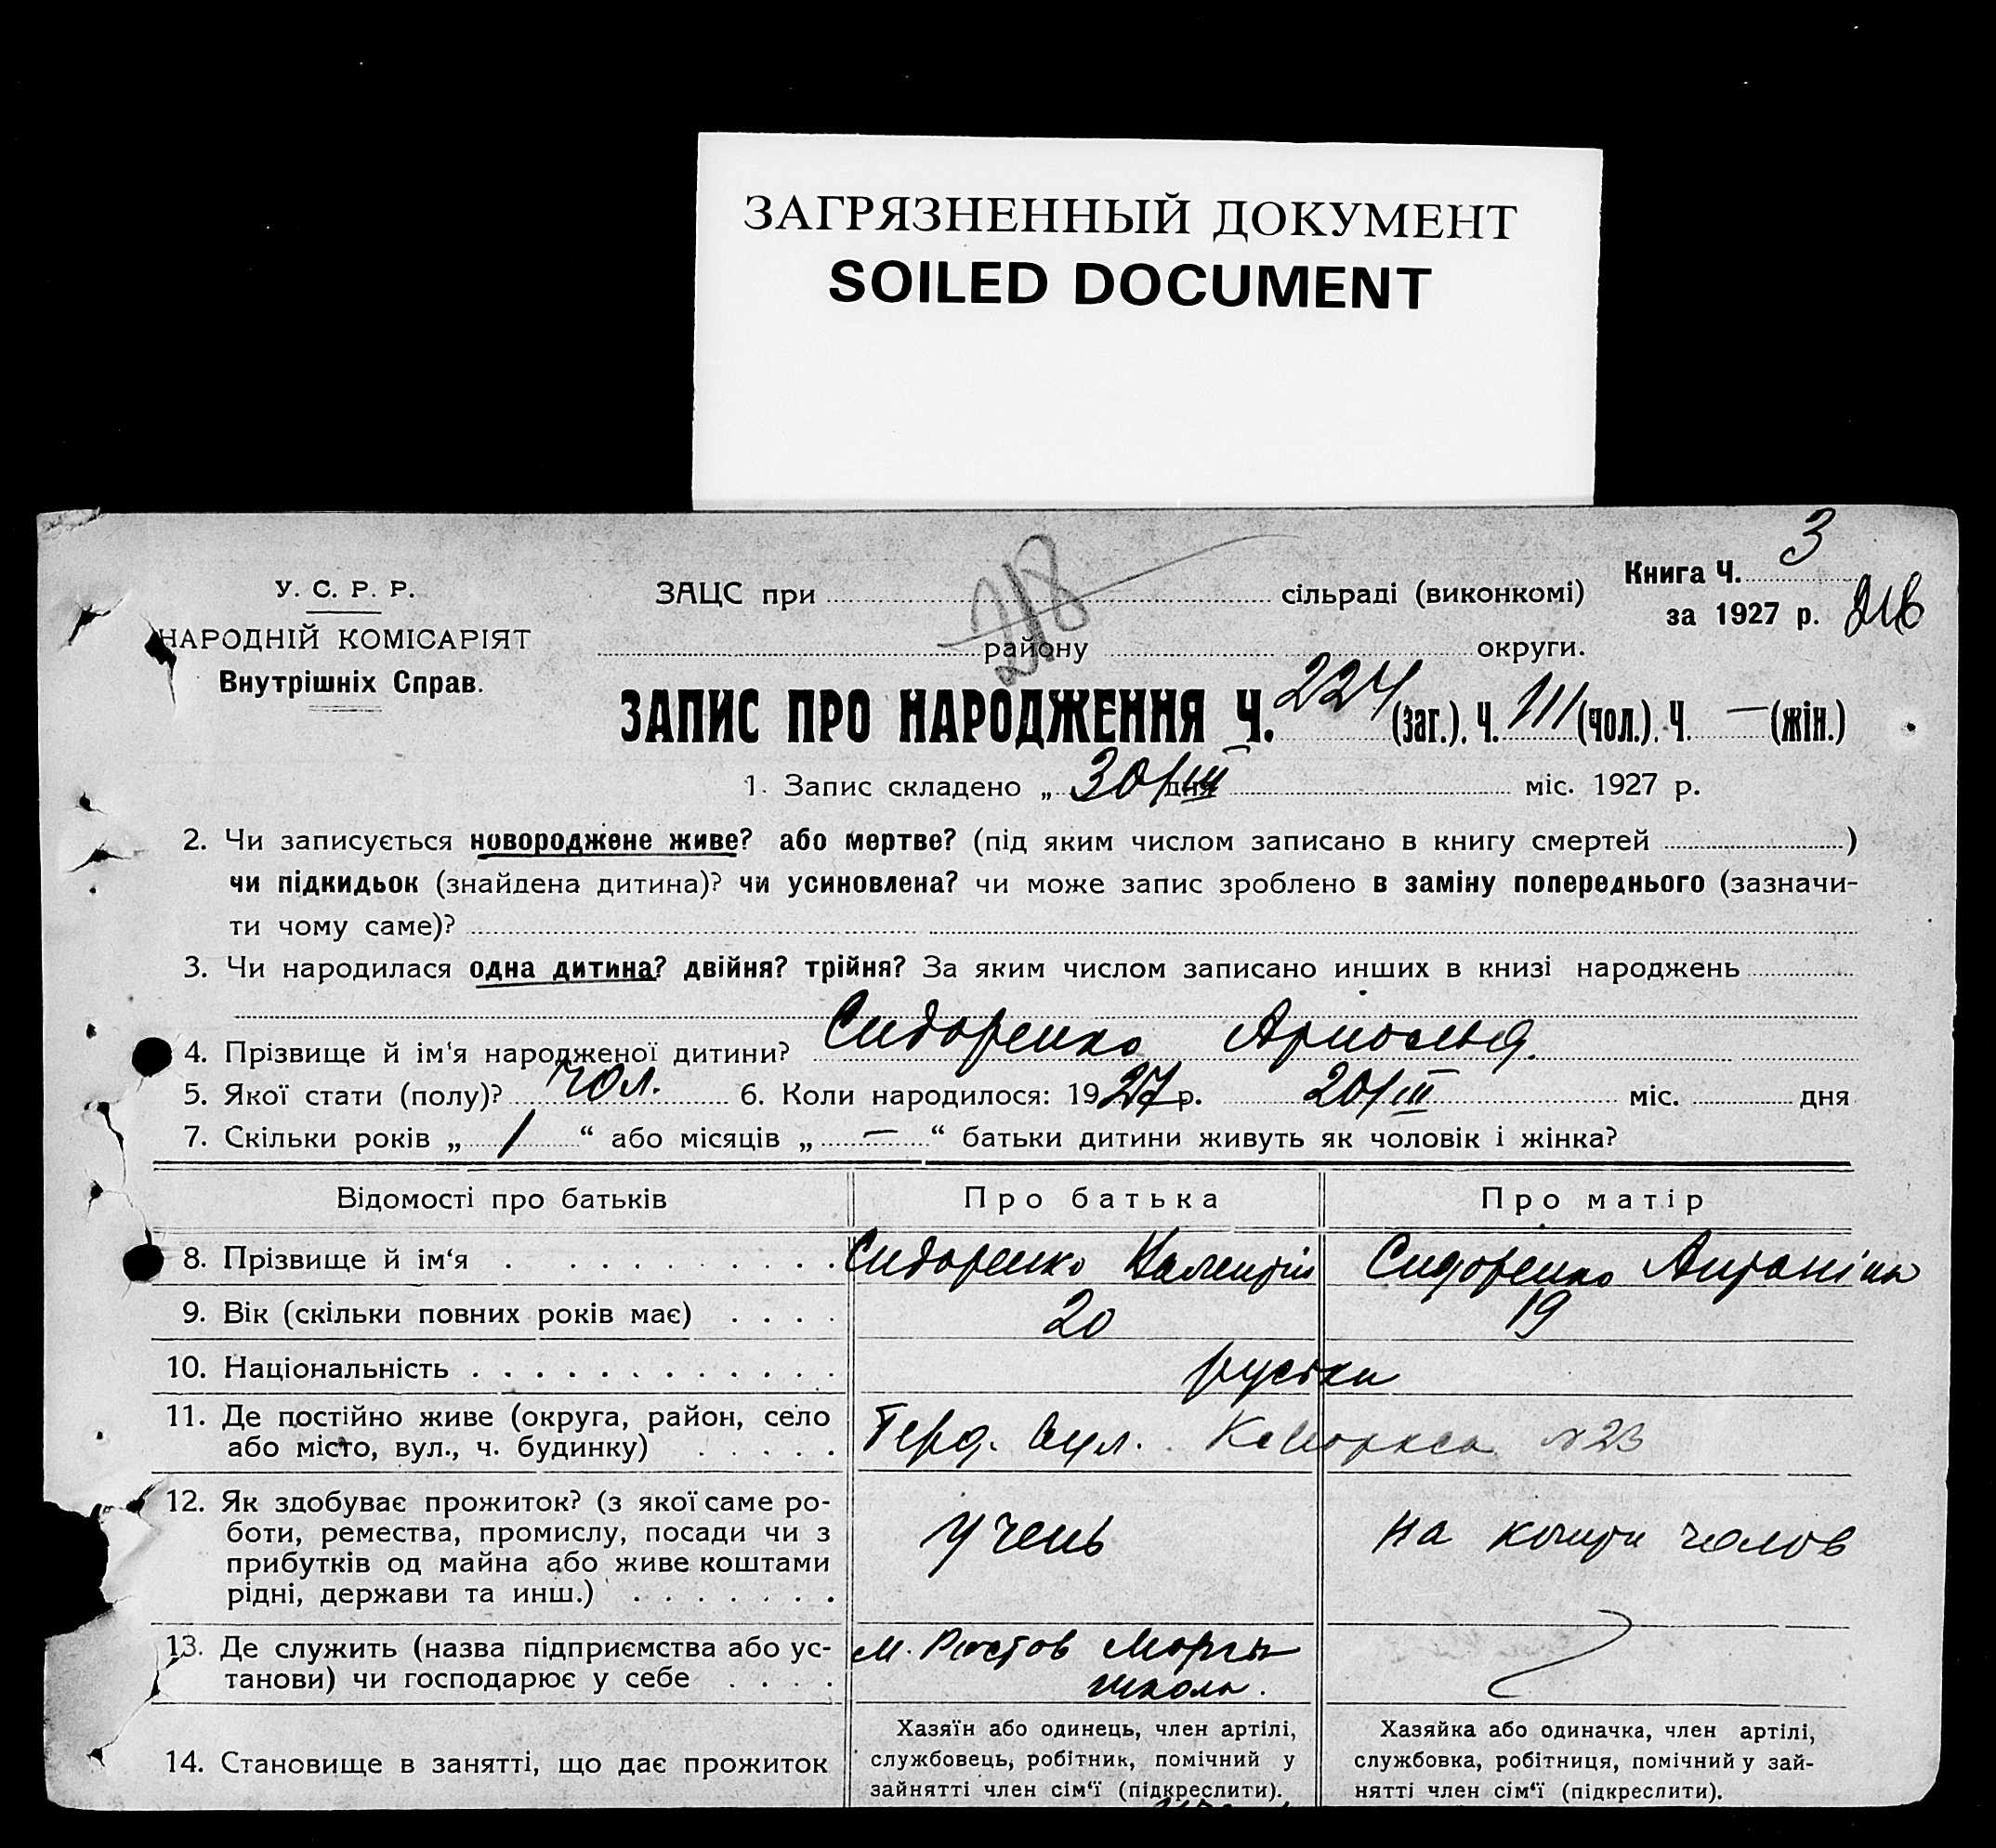 ЗАГРЯЗНЕННЫЙ ДОКУМЕНТ
SOILED DOCUMENT
3
Книга Ч.
У. С. Р. Р.
ЗАЦС при сільраді (виконкомі)
218
за 1927 р.
НАРОДНІЙ КОМІСАРІЯТ
району округи.
Внутрішніх Справ.
ЗАПИС ПРО НАРОДЖЕННЯ Ч. 224 (заг.). Ч. 111 (чол.). Ч. — (жін.)
1. Запис складено „ 30/III дня міс. 1927 р.
2. Чи записується новороджене живе? або мертве? (під яким числом записано в книгу смертей )
чи підкидьок (знайдена дитина)? чи усиновлена? чи може запис зроблено в заміну попереднього (зазначи-
ти чому саме)?
3. Чи народилася одна дитина? двійня? трійня? За яким числом записано инших в книзі народжень
4. Прізвище й ім‘я народженої дитини? Сидоренко Арнольд.
5. Якої стати (полу)? чол. 6. Коли народилося: 1927 р. 20/III міс. дня
7. Скільки років „ 1 “ або місяців „ — “ батьки дитини живуть як чоловік і жінка?
Відомості про батьків Про батька Про матір
8. Прізвище й ім‘я Сидоренко Сидоренко Антоніна
9. Вік (скільки повних років має) 20 19
10. Національність руські
11. Де постійно живе (округа, район, село
або місто, вул., ч. будинку) вул. К. Маркса №23
12. Як здобуває прожиток? (з якої саме ро-
боти, ремества, промислу, посади чи з
прибутків од майна або живе коштами
рідні, держави та инш.) учень на кошти чолов
13. Де служить (назва підприємства або ус-
танови) чи господарює у себе м. Ростов
школа.
14. Становище в занятті, що дає прожиток
Хазяїн або одинець, член артілі,
службовець, робітник, помічний у
зайнятті член сім‘ї (підкреслити).
Хазяйка або одиначка, член артілі,
службовка, робітниця, помічний у зай-
нятті член сім‘ї (підкреслити).